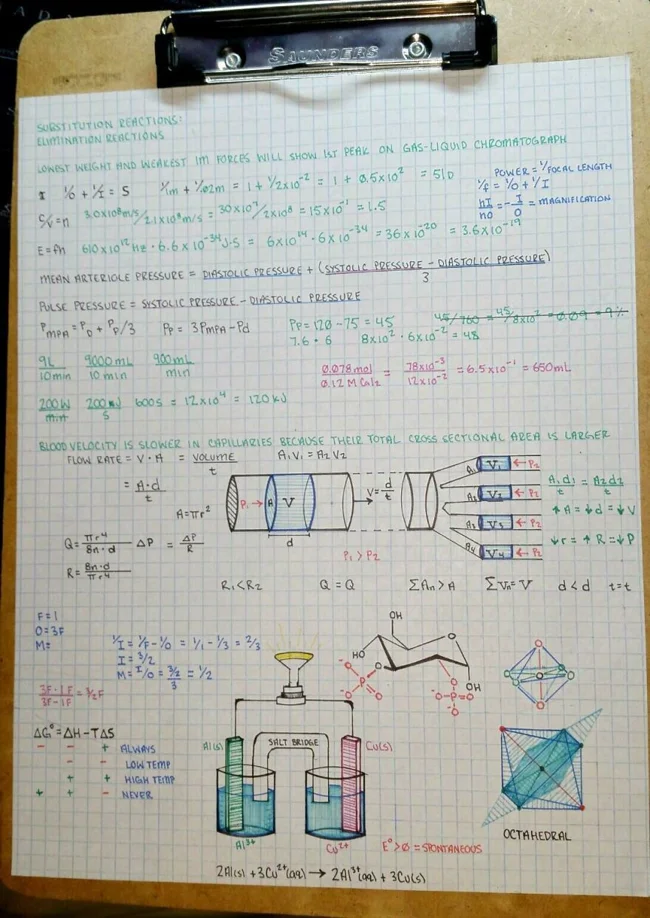 SAUNDERS
SUBSTITUTION REACTIONS:
ELIMINATION REACTIONS
LOWEST WEIGHT AND WEAKEST IM FORCES WILL SHOW 1ST PEAK ON GAS-LIQUID CHROMATOGRAPH
I 1/O + 1/I = S 1/1m + 1/.02m = 1 + 1/2x10⁻² = 1 + 0.5x10² = 51D
POWER = 1/FOCAL LENGTH
1/f = 1/O + 1/I
C/V = n 3.0x10⁸m/s/2.1x10⁸m/s = 30x10⁷/2x10⁸ = 15x10⁻¹ = 1.5
hI/hO = -I/O = MAGNIFICATION
E = fh 610x10¹²Hz · 6.6x10⁻³⁴J·S = 6x10¹⁴ · 6x10⁻³⁴ = 36x10⁻²⁰ = 3.6x10⁻¹⁹
MEAN ARTERIOLE PRESSURE = DIASTOLIC PRESSURE + (SYSTOLIC PRESSURE - DIASTOLIC PRESSURE)/3
PULSE PRESSURE = SYSTOLIC PRESSURE - DIASTOLIC PRESSURE
PMPA = PD + PP/3 PP = 3PMPA - Pd PP = 120 - 75 = 45 45/760 = 45/8x10² = 0.09 = 9%
7.6 · 6 8x10² · 6x10⁻² = 48
9L/10min 9000mL/10min 900mL/min
0.078mol/0.12 M CaI2 = 78x10⁻³/12x10⁻² = 6.5x10⁻¹ = 650mL
200W/min 200J/S 600s = 12x10⁴ = 120kJ
BLOOD VELOCITY IS SLOWER IN CAPILLARIES BECAUSE THEIR TOTAL CROSS SECTIONAL AREA IS LARGER
FLOW RATE = V · A = VOLUME/t A₁V₁ = A₂V₂
= A·d/t
A = πr²
P₁ → A V
d
V = d/t
A₁ V₁ ← P₂
A₂ V₂ ← P₂
A₃ V₃ ← P₂
A₄ V₄ ← P₂
A₁d₁/t = A₂d₂/t
↑A = ↓d = ↓V
↓r = ↑R = ↓P
Q = πr⁴/8n·d ΔP = ΔP/R
P₁ > P₂
R = 8n·d/πr⁴
R₁ < R₂ Q = Q ΣAn > A ΣVn = V d < d t = t
F = 1
O = 3F
M =
1/I = 1/F - 1/O = 1/1 - 1/3 = 2/3
I = 3/2
M = I/O = 3/2/3 = 1/2
3F · 1F/3F - 1F = 3/2F
OH
HO
O
OH
O
O⁻
O⁻
P
O
O
⁻O-P=O
O⁻
ΔG° = ΔH - TΔS
- - + ALWAYS
- - LOW TEMP
+ + HIGH TEMP
+ + - NEVER
Al(s) SALT BRIDGE Cu(s)
Al³⁺ Cu²⁺
E° > 0 = SPONTANEOUS
OCTAHEDRAL
2Al(s) + 3Cu²⁺(aq) → 2Al³⁺(aq) + 3Cu(s)